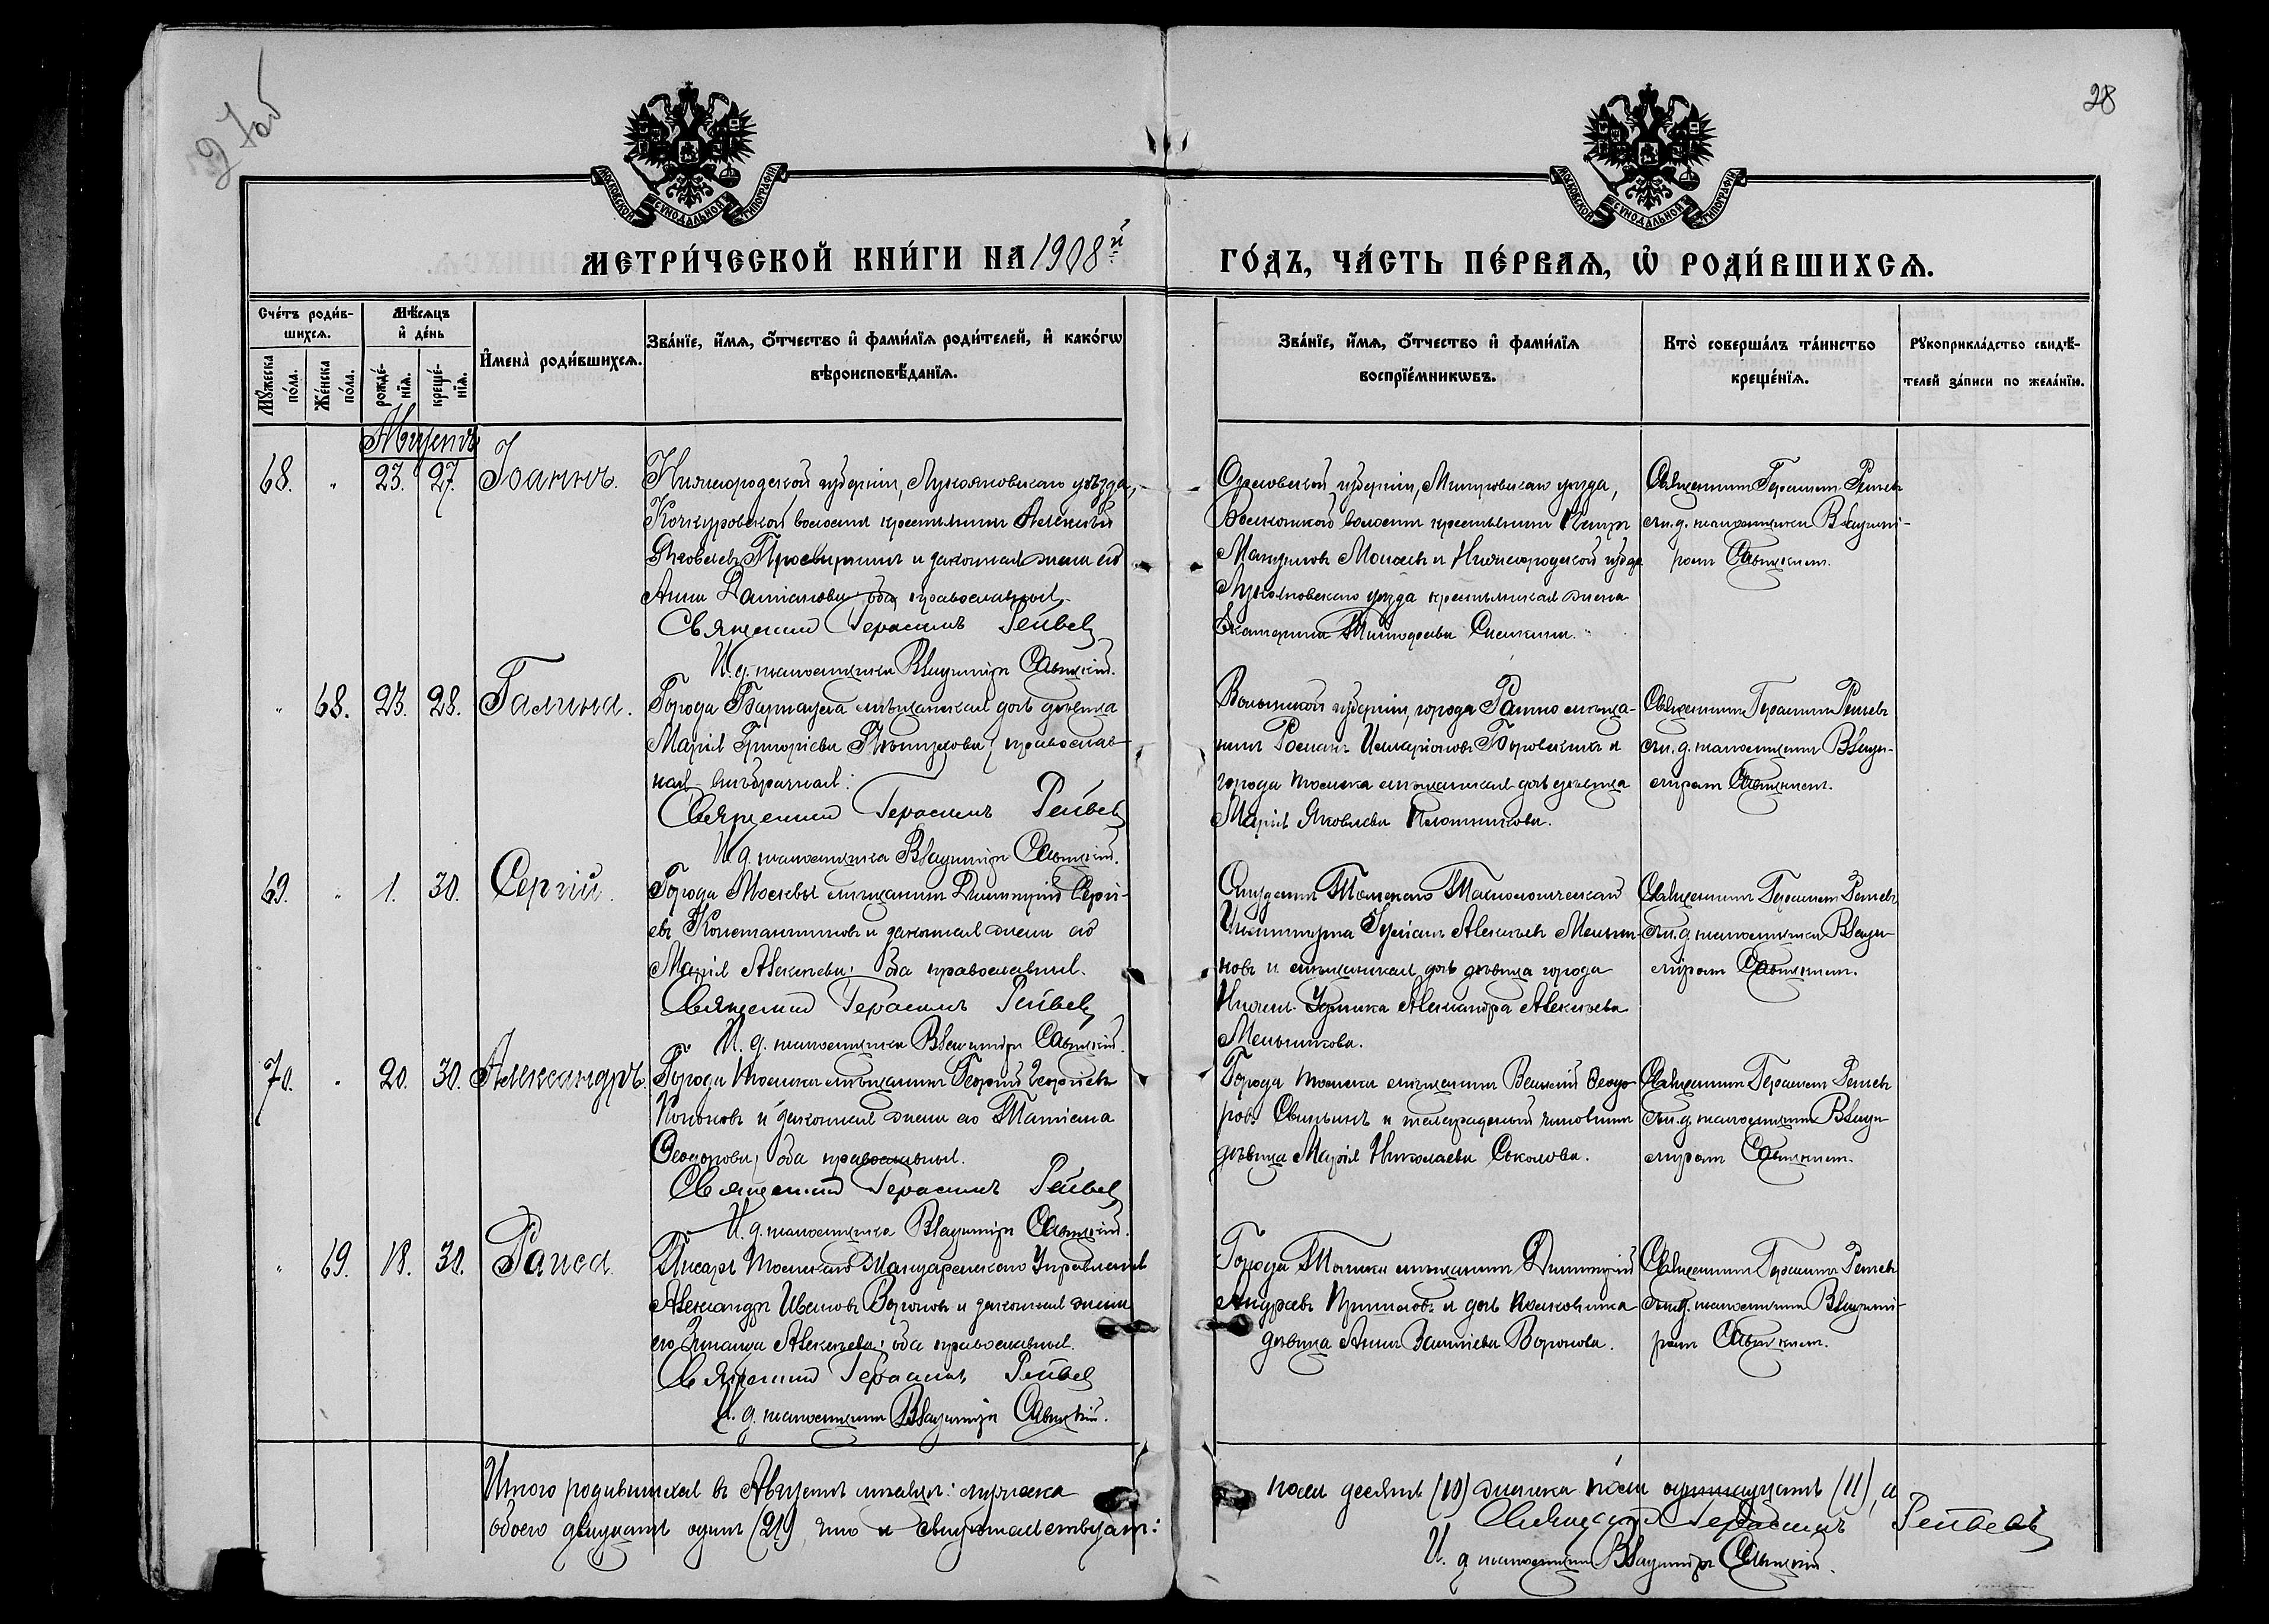 27об
28
МОСКОВСКОЙ СѴНОДАЛЬНОЙ ТИПОГРАФІИ
МОСКОВСКОЙ СѴНОДАЛЬНОЙ ТИПОГРАФІИ
МЕТРИ́ЧЕСКОЙ КНИ́ГИ НА 1908й
ГО́ДЪ, ЧА́СТЬ ПЕ́РВАЯ, Ѡ҆ РОДИ́ВШИХСЯ.
Сче́тъ роди́в-
шихся.
Мѣ́сяцъ
и҆ де́нь
Мꙋ́жеска по́ла.
Же́нска по́ла.
рожде́-
нїя.
креще́-
нїя.
И҆мена̀ роди́вшихся.
Зва́нїе, и҆́мя, ѻ҆́тчество и҆ фами́лїя роди́телей, и҆ како́гѡ
вѣроисповѣ́данїя.
Зва́нїе, и҆́мя, ѻ҆́тчество и҆ фами́лїя
воспрїе́мникѡвъ.
Кто̀ соверша́лъ та́инство
креще́нїя.
Рꙋкоприкла́дство свидѣ́-
телей за́писи по жела́нїю.
Августъ
68. " 23. 27. Іоаннъ.
Нижегородской губерніи, Лукояновскаго уѣзда,
Кочкуровской волости крестьянинъ Алексій
Яковлевъ и законная жена его
Анна оба православные.
Священникъ Герасимъ
И. д. псаломщика Владиміръ Савицкій.
Орловской губерніи, уѣзда,
волости крестьянинъ Петръ
и Нижегородской губер
Лукояновскаго уѣзда крестьянская жена
Екатерина
Священникъ Герасимъ
съ и. д. псаломщика Владимі-
ромъ Савицкимъ.
" 68. 23. 28. Галина.
Города Барнаула мѣщанская дочь дѣвица
Марія Григоріева православ-
ная, внѣбрачная.
Священникъ Герасимъ
И. д. псаломщика Владиміръ Савицкій.
Волынской губерніи, города мѣща-
нинъ Романъ и
города Томска мѣщанская дочь дѣвица
Марія Яковлева Плотникова.
Священникъ Герасимъ
съ и. д. псаломщика Влади-
міромъ Савицкимъ.
69. " 1. 30. Сергій.
Города Москвы мѣщанинъ Димитрій Сергі-
евъ Константиновъ и законная жена его
Марія Алексѣева, оба православные.
Священникъ Герасимъ
И. д. псаломщика Владиміръ Савицкій.
Студентъ Томскаго Технологическаго
Института Алексѣевъ Меньши-
ковъ и мѣщанская дочь дѣвица города
Нижне-Удинска Александра Алексѣева
Меньшикова.
Священникъ Герасимъ
съ и. д. псаломщика Влади-
міромъ Савицкимъ.
70. " 20. 30. Александръ.
Города Томска мѣщанинъ Георгій Георгіевъ
Кононовъ и законная жена его Татіана
Ѳеодорова, оба православные.
Священникъ Герасимъ
И. д. псаломщика Владиміръ Савицкій.
Города Томска мѣщанинъ Василій Ѳеодо-
ровъ Свиньинъ и телеграфный чиновникъ
дѣвица Марія Николаева Соколова.
Священникъ Герасимъ
съ и. д. псаломщика Влади-
міромъ Савицкимъ.
" 69. 18. 30. Раиса
Писарь Томскаго Жандармскаго Управленія
Александръ Ивановъ Вороновъ и законная жена
его Зинаида Алексѣева, оба православные.
Священникъ Герасимъ
И. д. псаломщика Владиміръ Савицкій.
Города Томска мѣщанинъ Димитрій
Андреевъ и дочь полковника
дѣвица Анна Воронова.
Священникъ Герасимъ
съ и. д. псаломщика Владимі-
ромъ Савицкимъ.
Итого родившихся въ Августѣ мѣсяцѣ: мужска
пола десять (10) женска пола одиннадцать (11), а
обоего двадцать одинъ (21), что и свидѣтельствуютъ:
Священникъ Герасимъ
И. д. псаломщика Владиміръ Савицкій.